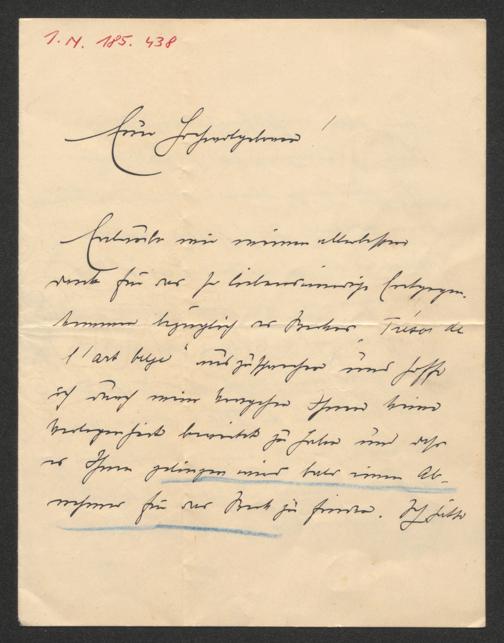 I. N. 185. 438
Euer Hochwohlgeboren!
Erlaube mir meinen allerbesten
Dank für das so liebenswürdige Entgegen-
kommen bezüglich des Werkes „Trésor de
l'art belge" auszusprechen und hoffe
ich durch mein Vorgehen Ihnen keine
Verlegenheit bereitet zu haben und dass
es Ihnen gelingen wird bald einen Ab-
nehmer für das Werk zu finden. Ich hätte